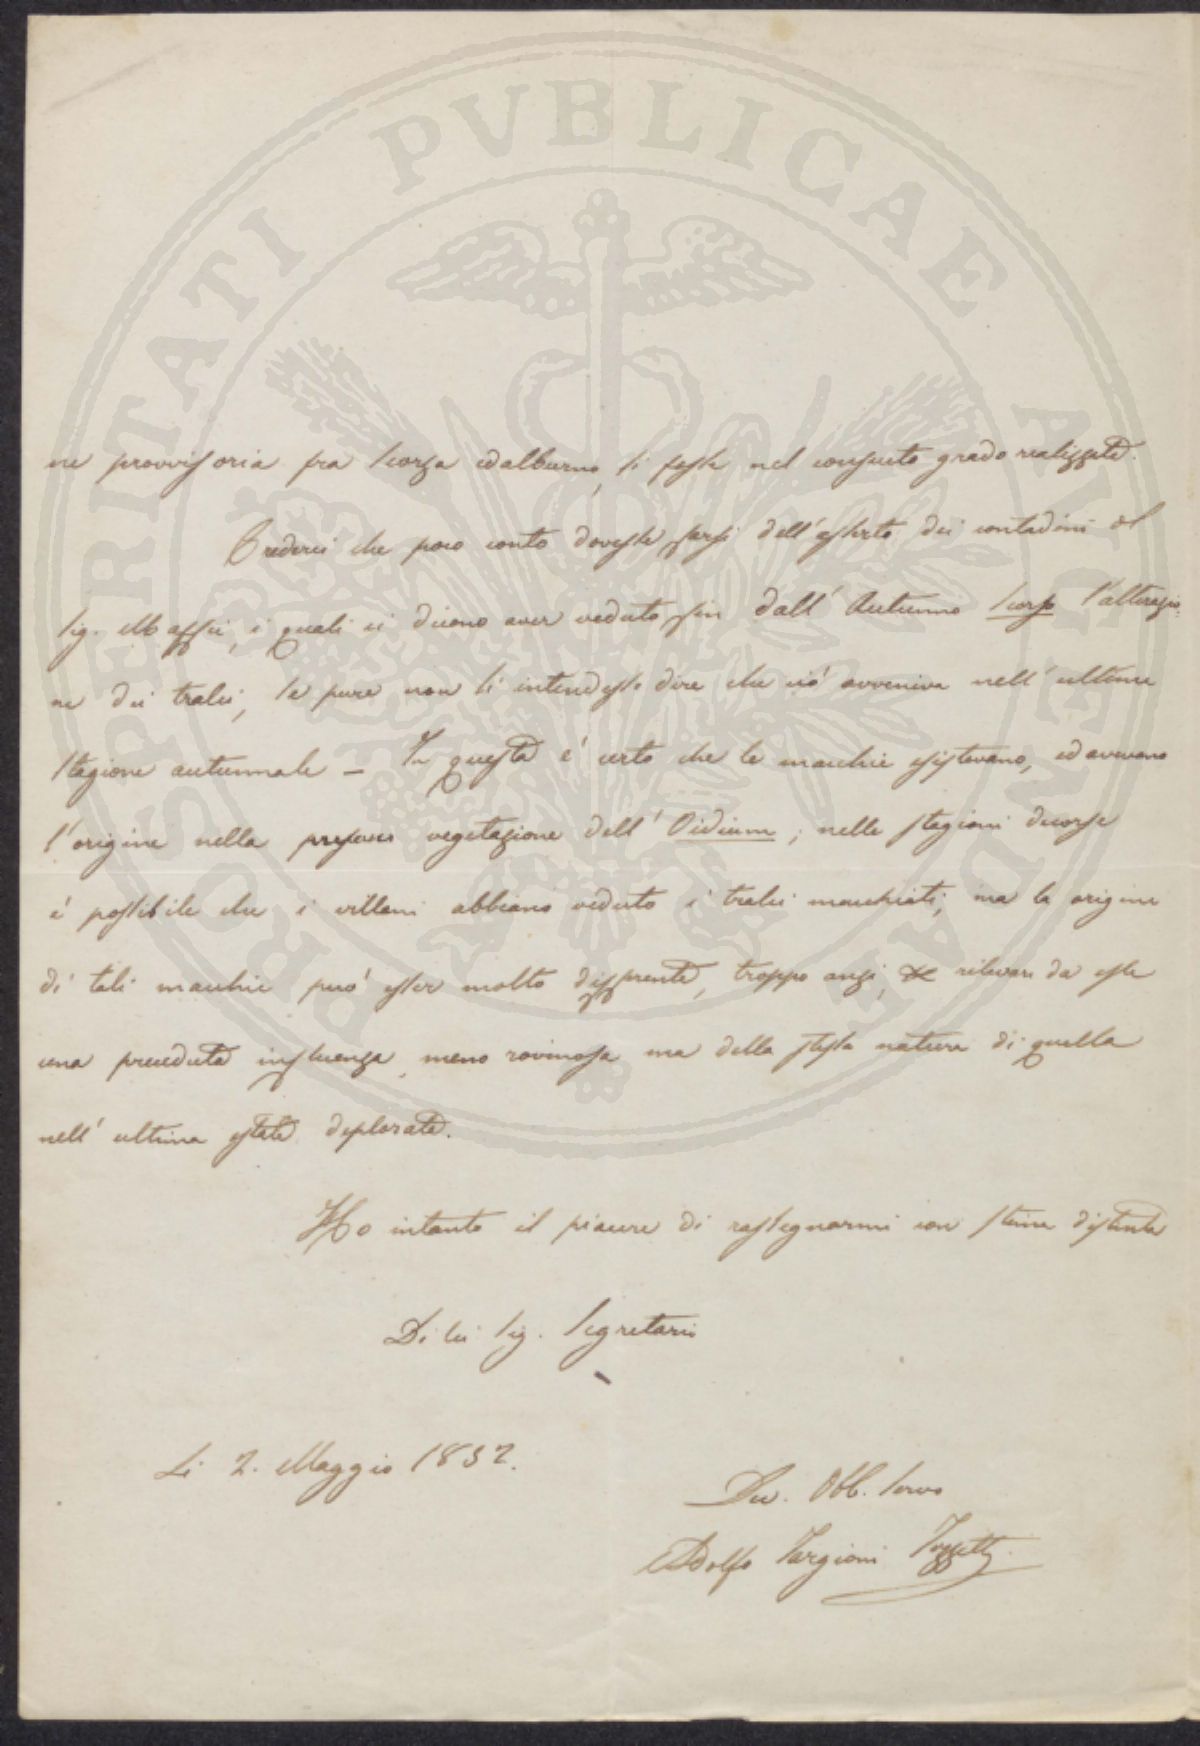 PROSPERITATI PVBLICAE AVGENDAE
ne provvisoria fra scorza ed alburno, si fosse nel consueto grado realizzata.
Crederei che poco conto dovesse farsi dell'asserto dei contadini del
Sig. Maffei, i quali ci dicono aver veduto fin dall'Autunno scorso l'alterazio
ne dei tralci, se pure non si intendesse dire che ciò avveniva nell'ultima
stagione autunnale – In questa è certo che le macchie esistevano, ed avevano
l'origine nella vegetazione dell'Oidium; nelle stagioni decorse
è possibile che i villani abbiano veduto i tralci macchiati, ma la origine
di tali macchie può esser molto differente, troppo anzi, rilevare da esse
una preceduta influenza meno rovinosa ma della stessa natura di quella
nell'ultima estate deplorata.
Ho intanto il piacere di rassegnarmi con stima distinta
Di lei Sig. Segretario
Li 2. Maggio 1852.
Dev. Obb. servo
Adolfo Targioni Tozzetti